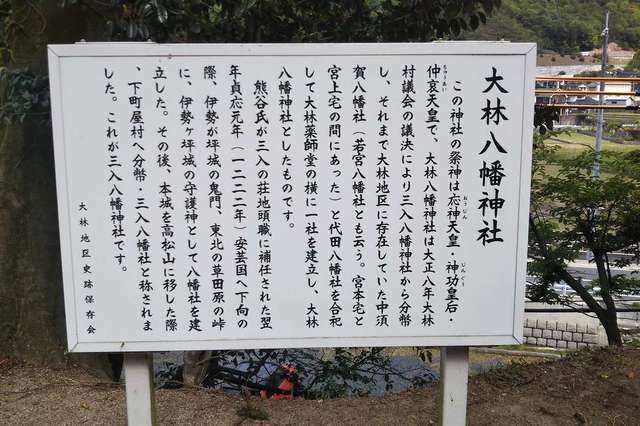 大林八幡神社
この神社の祭神は応神天皇・神功皇后・
おうじん
じんぐう
仲哀天皇で、大林八幡神社は大正八年大林
ちゅうあい
村議会の議決により三入八幡神社から分幣
し、それまで大林地区に存在していた中須
賀八幡社（若宮八幡社とも云う。宮本宅と
宮上宅の間にあった）と代田八幡社を合祀
して大林薬師堂の横に一社を建立し、大林
八幡神社としたものです。
熊谷氏が三入の荘地頭職に補任された翌
年貞応元年（一二二二年）安芸国へ下向の
際、伊勢が坪城の鬼門、東北の草田原の峠
に、伊勢ヶ坪城の守護神として八幡社を建
立した。その後、本城を高松山に移した際
、下町屋村へ分幣・三入八幡社と称されま
した。これが三入八幡神社です。
大林地区史跡保存会